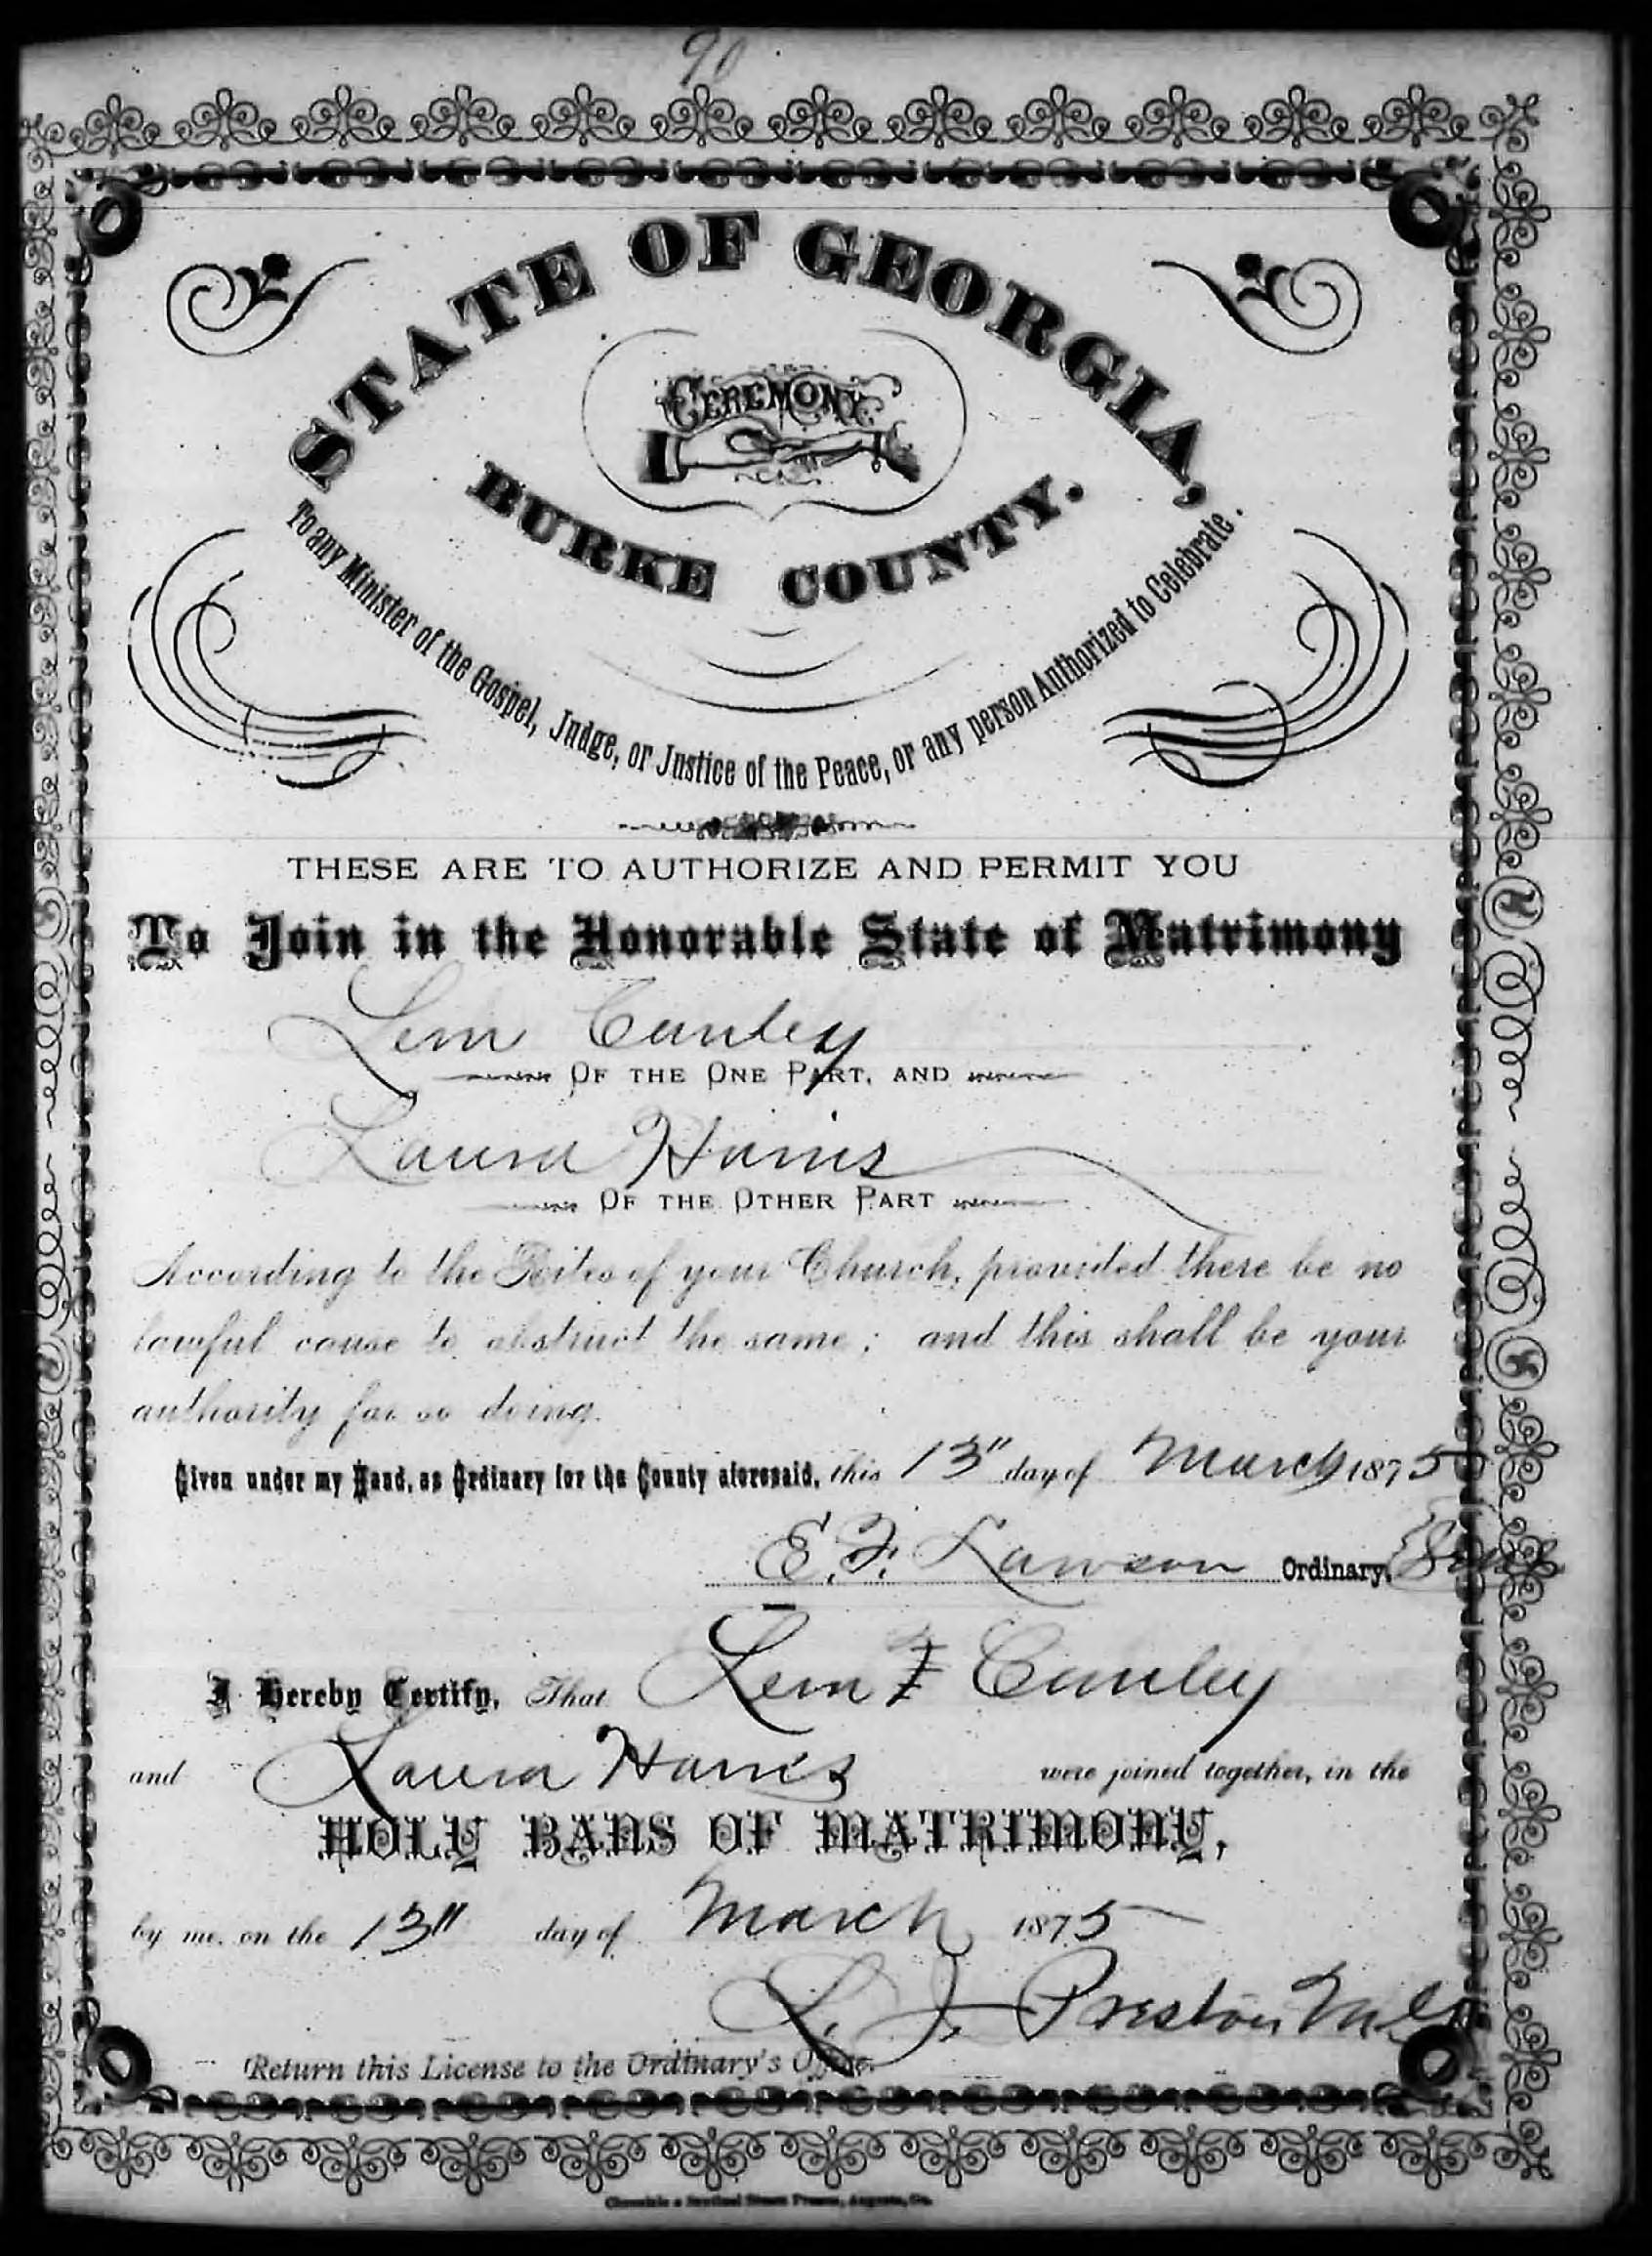 90
STATE OF GEORGIA,
CEREMONY
BURKE COUNTY.
To any Minister of the Gospel, Judge, or Justice of the Peace, or any person Authorized to Celebrate.
THESE ARE TO AUTHORIZE AND PERMIT YOU
To Join in the Honorable State of Matrimony
Lem Cauley
OF THE ONE PART, AND
Laura Harris
OF THE OTHER PART
According to the Rites of your Church, provided there be no
lawful cause to obstruct the same; and this shall be your
authority for so doing.
Given under my Hand, as Ordinary for the County aforesaid, this 13" day of March 1875
E. F. Lawson Ordinary,
I Hereby Certify, That Lem Cauley
and Laura Harris were joined together, in the
HOLY BANS OF MATRIMONY,
by me, on the 13" day of March 1875
L. J. Preston
Return this License to the Ordinary's Office.
Chronicle & Sentinel Steam Presses, Augusta, Ga.